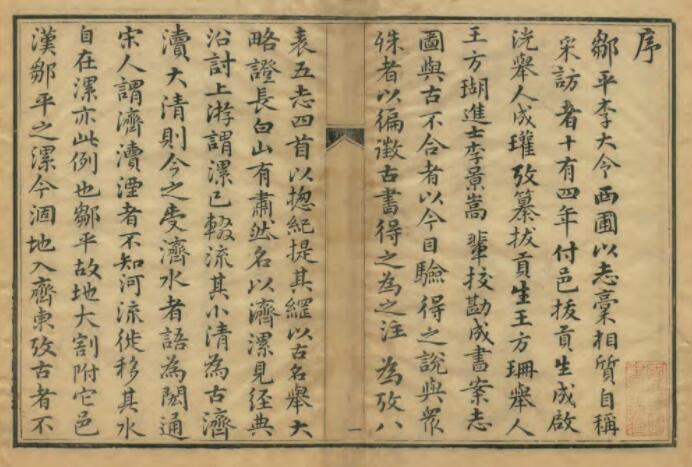 序
鄒平李大令西圃以志稾相質自稱
采訪者十有四年付邑拔貢生成啟
洸舉人成瓘攷纂拔貢生王方珊舉人
王方瑚進士李景嵩輩挍勘成書案志
圖與古不合者以今目驗得之說與眾
殊者以徧徵古書得之為之注 為攷八
表五志四首以摠紀提其綱以古名舉大
略證長白山有肅然名以濟漯見經典
沿討上游謂漯已輟流其小清為古濟
瀆大清則今之受濟水者語為閎通
宋人謂濟瀆湮者不知河流徙移其水
自在漯亦此例也鄒平故地大割附它邑
漢鄒平之漯今涸地入齊東攷古者不
一